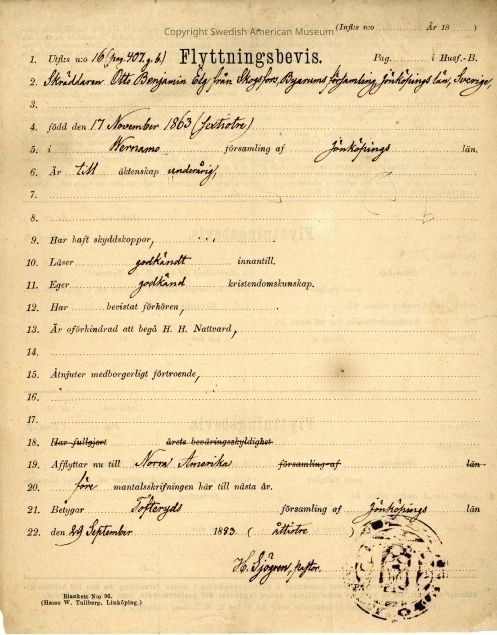 Copyright Swedish American Museum
(Infl:s n:o År 18 )
1. Utfl:s n:o 16 (pag. 407. g. b.) Flyttningsbevis. Pag. i Husf.-B.
2. Skräddaren Otto Benjamin Elg från Skogsfors, Byarums församling, Jönköpings län, Sverige,
3.
4. född den 17 November 1863 (sextiotre)
5. i Wernamo församling af Jönköpings län.
6. Är till äktenskap underårig,
7.
8.
9. Har haft skyddskoppor,
10. Läser godkändt innantill.
11. Eger godkänd kristendomskunskap.
12. Har bevistat förhören,
13. Är oförhindrad att begå H. H. Nattvard,
14.
15. Åtnjuter medborgerligt förtroende,
16.
17.
18. Har fullgjort årets beväringsskyldighet
19. Afflyttar nu till Norra Amerika församling af län
20. före mantalsskrifningen här till nästa år.
21. Betygar Tofteryds församling af Jönköpings län
22. den 29 September 1883 (åttiotre)
H. Sjögren, Pastor.
Blankett N:o 96.
(Hasse W. Tullberg, Linköping.)